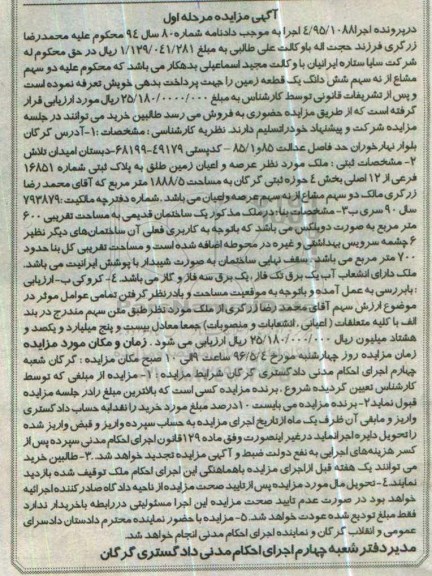 آگهی مزایده مرحله اول
درپرونده اجرا۴/۹۵/۱۰۸۸ اجرا به موجب دادنامه شماره۸۰ سال ۹۴ محکوم علیه محمدرضا
زرگری فرزند حجت اله باوکالت علی طالبی به مبلغ ۱/۱۲۹/۰۴۱/۲۸۱ ریال در حق محکوم له
شرکت سایا ستاره ایرانیان با وکالت مجید اسماعیلی بدهکار می باشد که محکوم علیه دو سهم
مشاع از نه سهم شش دانگ یک قطعه زمین را جهت پرداخت بدهی خویش تعرفه نموده است
و پس از تشریفات قانونی توسط کارشناس به مبلغ ۲۵/۱۸۰/۰۰۰/۰۰۰ ریال مورد ارزیابی قرار
گرفته است که از طریق مزایده حضوری به فروش می رسد طالبین خرید می توانند در جلسه
مزایده شرکت و پیشنهاد خودراتسلیم دارند. نظریه کارشناسی : مشخصات :۱-آدرس گرگان
بلوار نهارخوران حد فاصل عدالت ۸۵و۸۵/۱ - کدپستی ۴۹۱۷۹-۶۸۱۹۹-دبستان امیدان تلاش
۲- مشخصات ثبتی : ملک مورد نظر عرصه و اعیان زمین طلق به پلاک ثبتی شماره ۱۶۸۵۱
فرعی از ۱۲ اصلی بخش ۴ حوزه ثبتی گرگان به مساحت ۱۸۸۸/۵ متر مربع که آقای محمد رضا
زرگری مالک دو سهم مشاع از نه سهم عرصه واعیان می باشد. شماره دفترچه مالکیت :۷۹۳۸۷۹
سال ۹۰ سری ب ۳- مشخصات بنا: درملک مذکور یک ساختمان قدیمی به مساحت تقریبی ۶۰۰
متر مربع به صورت دوبلکس می باشد که باتوجه به کاربری فعلی آن ساختمان های دیگر نظیر
۶ چشمه سرویس بهداشتی و غیره در محوطه اضافه شده است و مساحت تقریبی کل بنا حدود
۷۰۰ متر مربع می باشد. سقف نهایی ساختمان به صورت شیبدار با پوشش ایرانیت می باشد.
ملک دارای انشعاب آب یک برق تک فاز، یک برق سه فاز و گاز می باشد. ۴- کروکی ب-ارزیابی
:بابررسی به عمل آمده و باتوجه به موقعیت مساحت و بادرنظر گرفتن تمامی عوامل موثر در
موضوع ارزش سهم آقای محمد رضا زرگری از ملک مورد نظر طبق متن سهم مندرج در بند
الف با کلیه متعلقات ( اعیانی ، انشعابات و منصوبات) جمعا معادل بیست و پنج میلیارد و یکصد و
هشتاد میلیون ریال ۲۵/۱۸۰/۰۰۰/۰۰۰ ریال ارزیابی می شود . زمان و مکان مورد مزایده
زمان مزایده روز چهارشنبه مورخ ۹۶/۵/۴ ساعت ۹الی ۱۰ صبح مکان مزایده : گرگان شعبه
چهارم اجرای احکام مدنی دادگستری گرگان شرایط مزایده : ۱- مزایده از مبلغی که توسط
کارشناس تعیین گردیده شروع . برنده مزایده کسی است که بالاترین مبلغ رادر جلسه مزایده
قبول نماید۲- برنده مزایده می بایست ۱۰درصد مبلغ مورد خرید را نقدابه حساب دادگستری
واریز و مابقی آن ظرف یک ماه از تاریخ اجرای مزایده به حساب سپرده واریز و قبض واریز شده
را تحویل دایره اجرانماید درغیر اینصورت وفق ماده ۱۲۹قانون اجرای احکام مدنی سپرده پس از
کسر هزینه های اجرایی به نفع دولت ضبط و آگهی مزایده تجدید خواهد شد. ۳-طالبین خرید
می توانند یک هفته قبل ازاجرای مزایده باهماهنگی این اجرای احکام ملک توقیف شده بازدید
نمایند.۴- تحویل مال مورد مزایده پس از تایید صحت مزایده از ناحیه دادگاه صادر کننده اجرائیه
خواهد بود در صورت عدم تایید صحت مزایده این اجرا مسئولیتی دررابطه باخریدار ندارد
فقط مبلغ تودیع شده عودت خواهد شد. ۵- مزایده با حضور نماینده محترم دادستان دادسرای
عمومی و انقلاب گرگان و نماینده اجرای احکام مدنی انجام خواهد شد.
مدیر دفتر شعبه چهارم اجرای احکام مدنی دادگستری گرگان